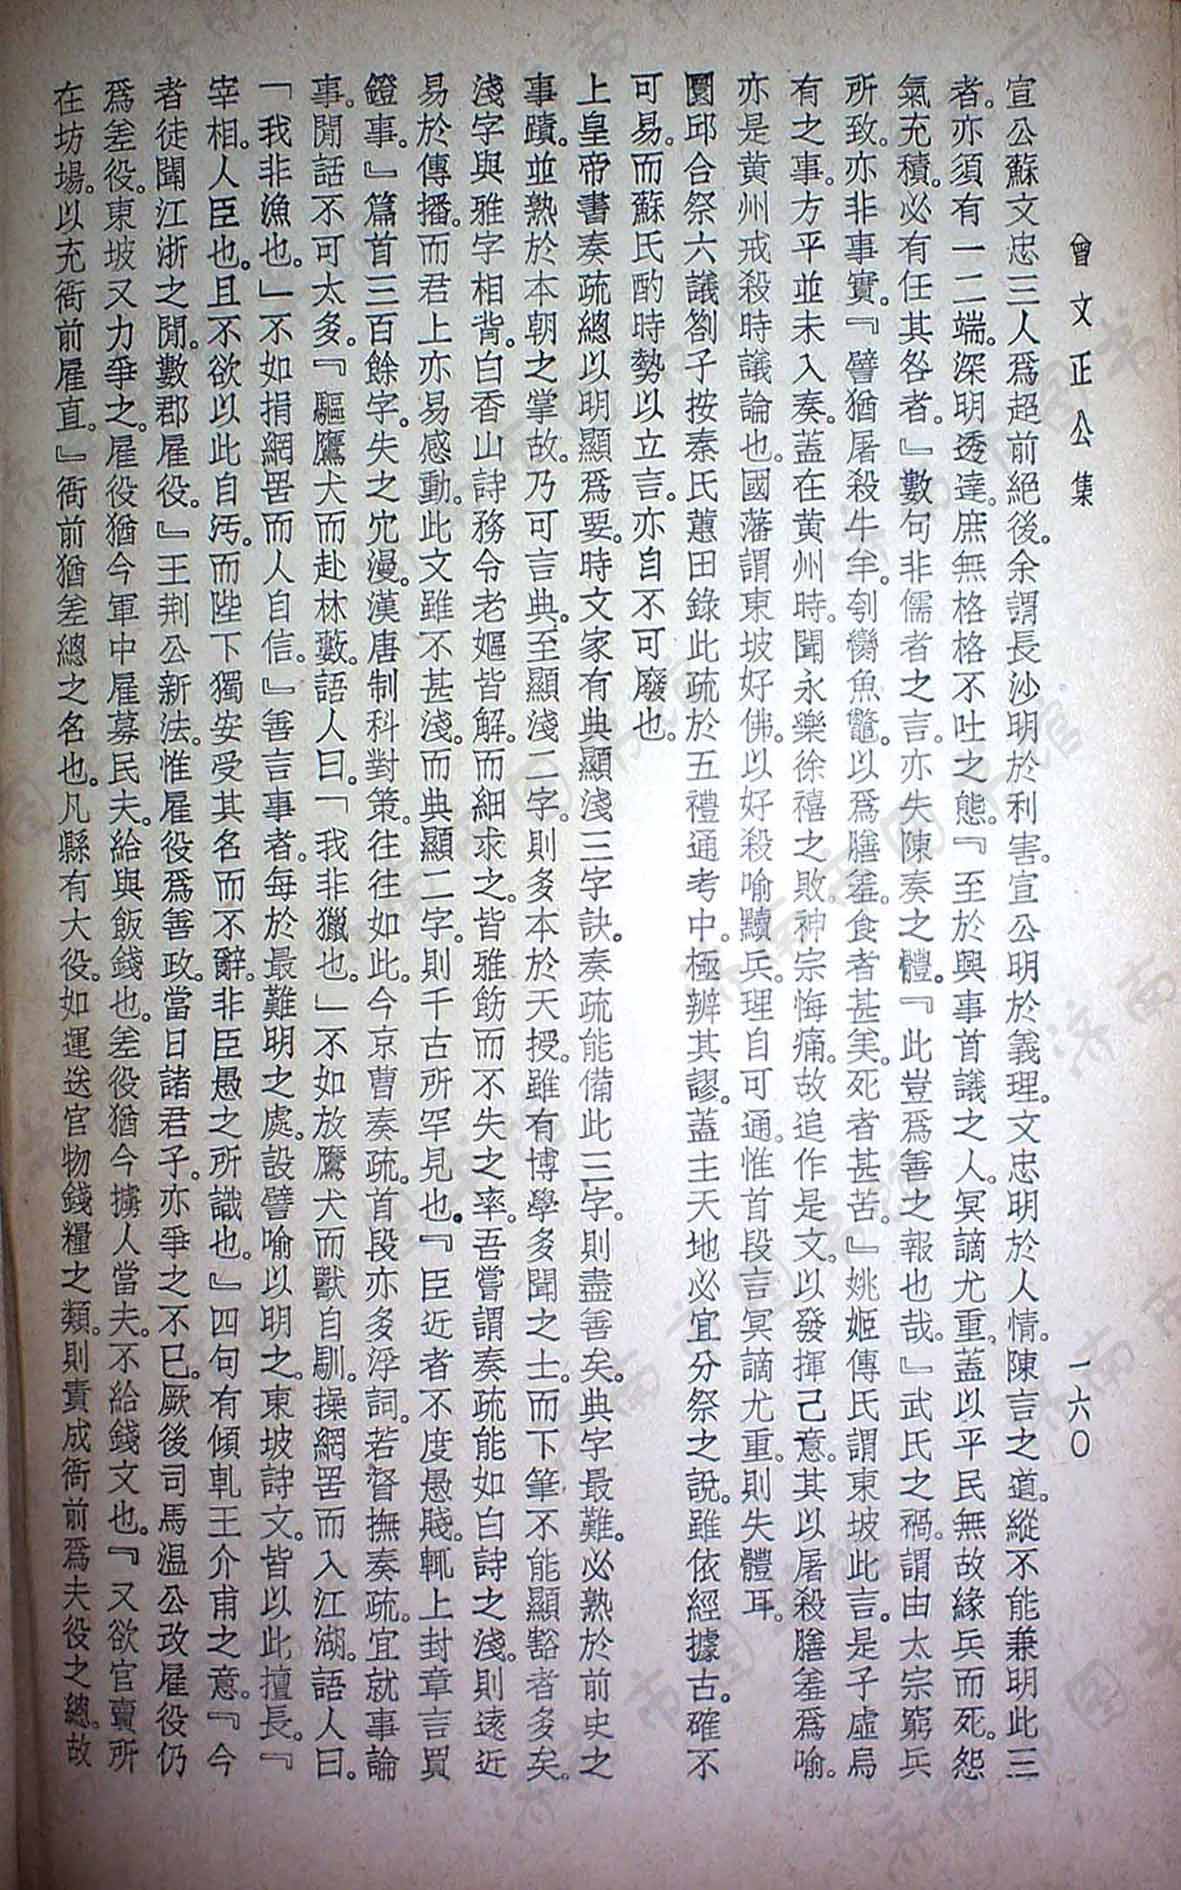 曾文正公集
一六〇
宣公蘇文忠三人爲超前絕後。余謂長沙明於利害。宣公明於義理。文忠明於人情。陳言之道。縱不能兼明此三
者。亦須有一二端。深明透達。庶無格格不吐之態。『至於興事首議之人。冥謫尤重。蓋以平民無故緣兵而死。怨
氣充積。必有任其咎者。』數句非儒者之言。亦失陳奏之體。『此豈爲善之報也哉。』武氏之禍。謂由太宗窮兵
所致。亦非事實。『譬猶屠殺牛羊。刳臠魚鼈。以爲膳羞。食者甚美。死者甚苦。』姚姬傳氏謂東坡此言。是子虛烏
有之事。方平並未入奏。蓋在黃州時。聞永樂徐禧之敗神宗悔痛。故追作是文。以發揮己意。其以屠殺膳羞爲喻。
亦是黃州戒殺時議論也。國藩謂東坡好佛。以好殺喻黷兵。理自可通。惟首段言冥謫尤重。則失體耳。
圜邱合祭六議劄子按秦氏蕙田錄此疏於五禮通考中。極辨其謬。蓋主天地必宜分祭之說。雖依經據古。確不
可易。而蘇氏酌時勢以立言。亦自不可廢也。
上皇帝書奏疏總以明顯爲要。時文家有典顯淺三字訣。奏疏能備此三字。則盡善矣。典字最難。必熟於前史之
事蹟。並熟於本朝之掌故。乃可言典。至顯淺二字。則多本於天授。雖有博學多聞之士。而下筆不能顯豁者多矣。
淺字與雅字相背。白香山詩務令老嫗皆解。而細求之。皆雅飭而不失之率。吾嘗謂奏疏能如白詩之淺。則遠近
易於傳播。而君上亦易感動。此文雖不甚淺。而典顯二字。則千古所罕見也。『臣近者不度愚賤。輒上封章言買
鐙事。』篇首三百餘字。失之宂漫。漢唐制科對策。往往如此。今京曹奏疏。首段亦多浮詞。若督撫奏疏。宜就事論
事。閒話不可太多。『驅鷹犬而赴林藪。語人曰。「我非獵也。」不如放鷹犬而獸自馴。操網罟而入江湖。語人曰。
「我非漁也。」不如捐網罟而人自信。』善言事者。每於最難明之處。設譬喻以明之。東坡詩文。皆以此擅長。『
宰相。人臣也。且不欲以此自汚。而陛下獨安受其名而不辭。非臣愚之所識也。』四句有傾軋王介甫之意。『今
者徒聞江浙之閒。數郡雇役。』王荆公新法。惟雇役爲善政。當日諸君子。亦爭之不已。厥後司馬温公改雇役仍
爲差役。東坡又力爭之。雇役猶今軍中雇募民夫。給與飯錢也。差役猶今擄人當夫。不給錢文也。『又欲官賣所
在坊場。以充衙前雇直。』衙前猶差總之名也。凡縣有大役。如運送官物錢糧之類。則責成衙前爲夫役之總。故